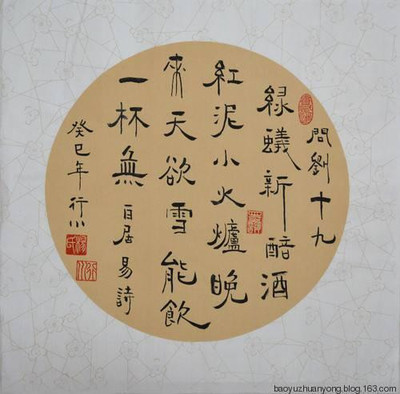 問劉十九
緑蟻新醅酒
紅泥小火爐晚
來天欲雪能飲
一杯無 白居易詩
癸巳年 行川
baoyuzhuanyong.blog.163.com